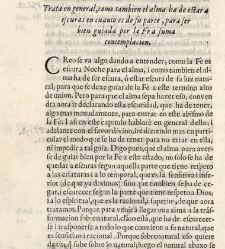 Trata en general, como tambien el alma ha de estar a
escuras en cuanto es de su parte, para ser
bien guiada por la Fe a suma
contemplacion.
CReo se va algo dando a entender, como la Fè es
escura Noche para el alma, i como tambien el al-
ma ha de ser escura, ò estar escura de su luz natural,
para que de la Fè se dexe guiar a este alto termino de
union. Pero para que el alma sepa hazer esto, convendrà
ahora ir declarando esta escuridad, que ha de tener,
algo mas menudamente, para entrar en este abismo de
la Fè. I assi en este capitulo hablarè en general della, i
adelante con el favor divino, irè diziendo mas en parti-
cular el modo que se ha de tener para no errar en ella,
ni impedir a tal guia. Digo pues, que el alma para aver-
se de guiar bien por la Fè a este estado, no solo se ha de
quedar a escuras segun aquella parte, que tiene respeto
a las criaturas, i a lo temporal, que es la sensitiva i infe-
rior (de que avemos tratado;) sino que tambien se ha de ce-
gar, i escurecer segun la parte que tiene respeto a Dios,
i a lo espiritual, que es la racional, i superior, de que aora
tratamos. Porque para llegar una alma a la
transformacion sobrenatural, claro està, que ha de escurecer-
se i trasponerse a todo lo que contiene su natural, que
es sensitivo i racional. Porque sobrenatural esso quiere
dezir, que sube sobre lo natural; luego el natural abaxo se